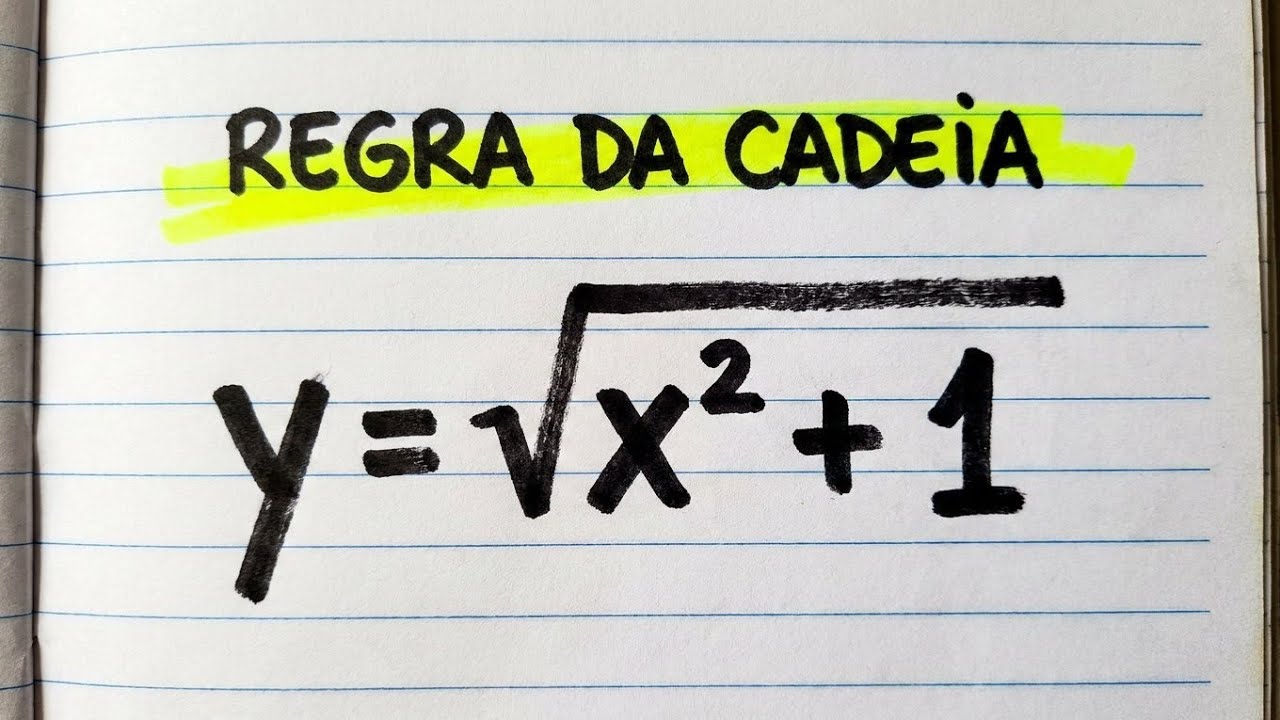 REGRA DA CADEIA
y = √x² + 1